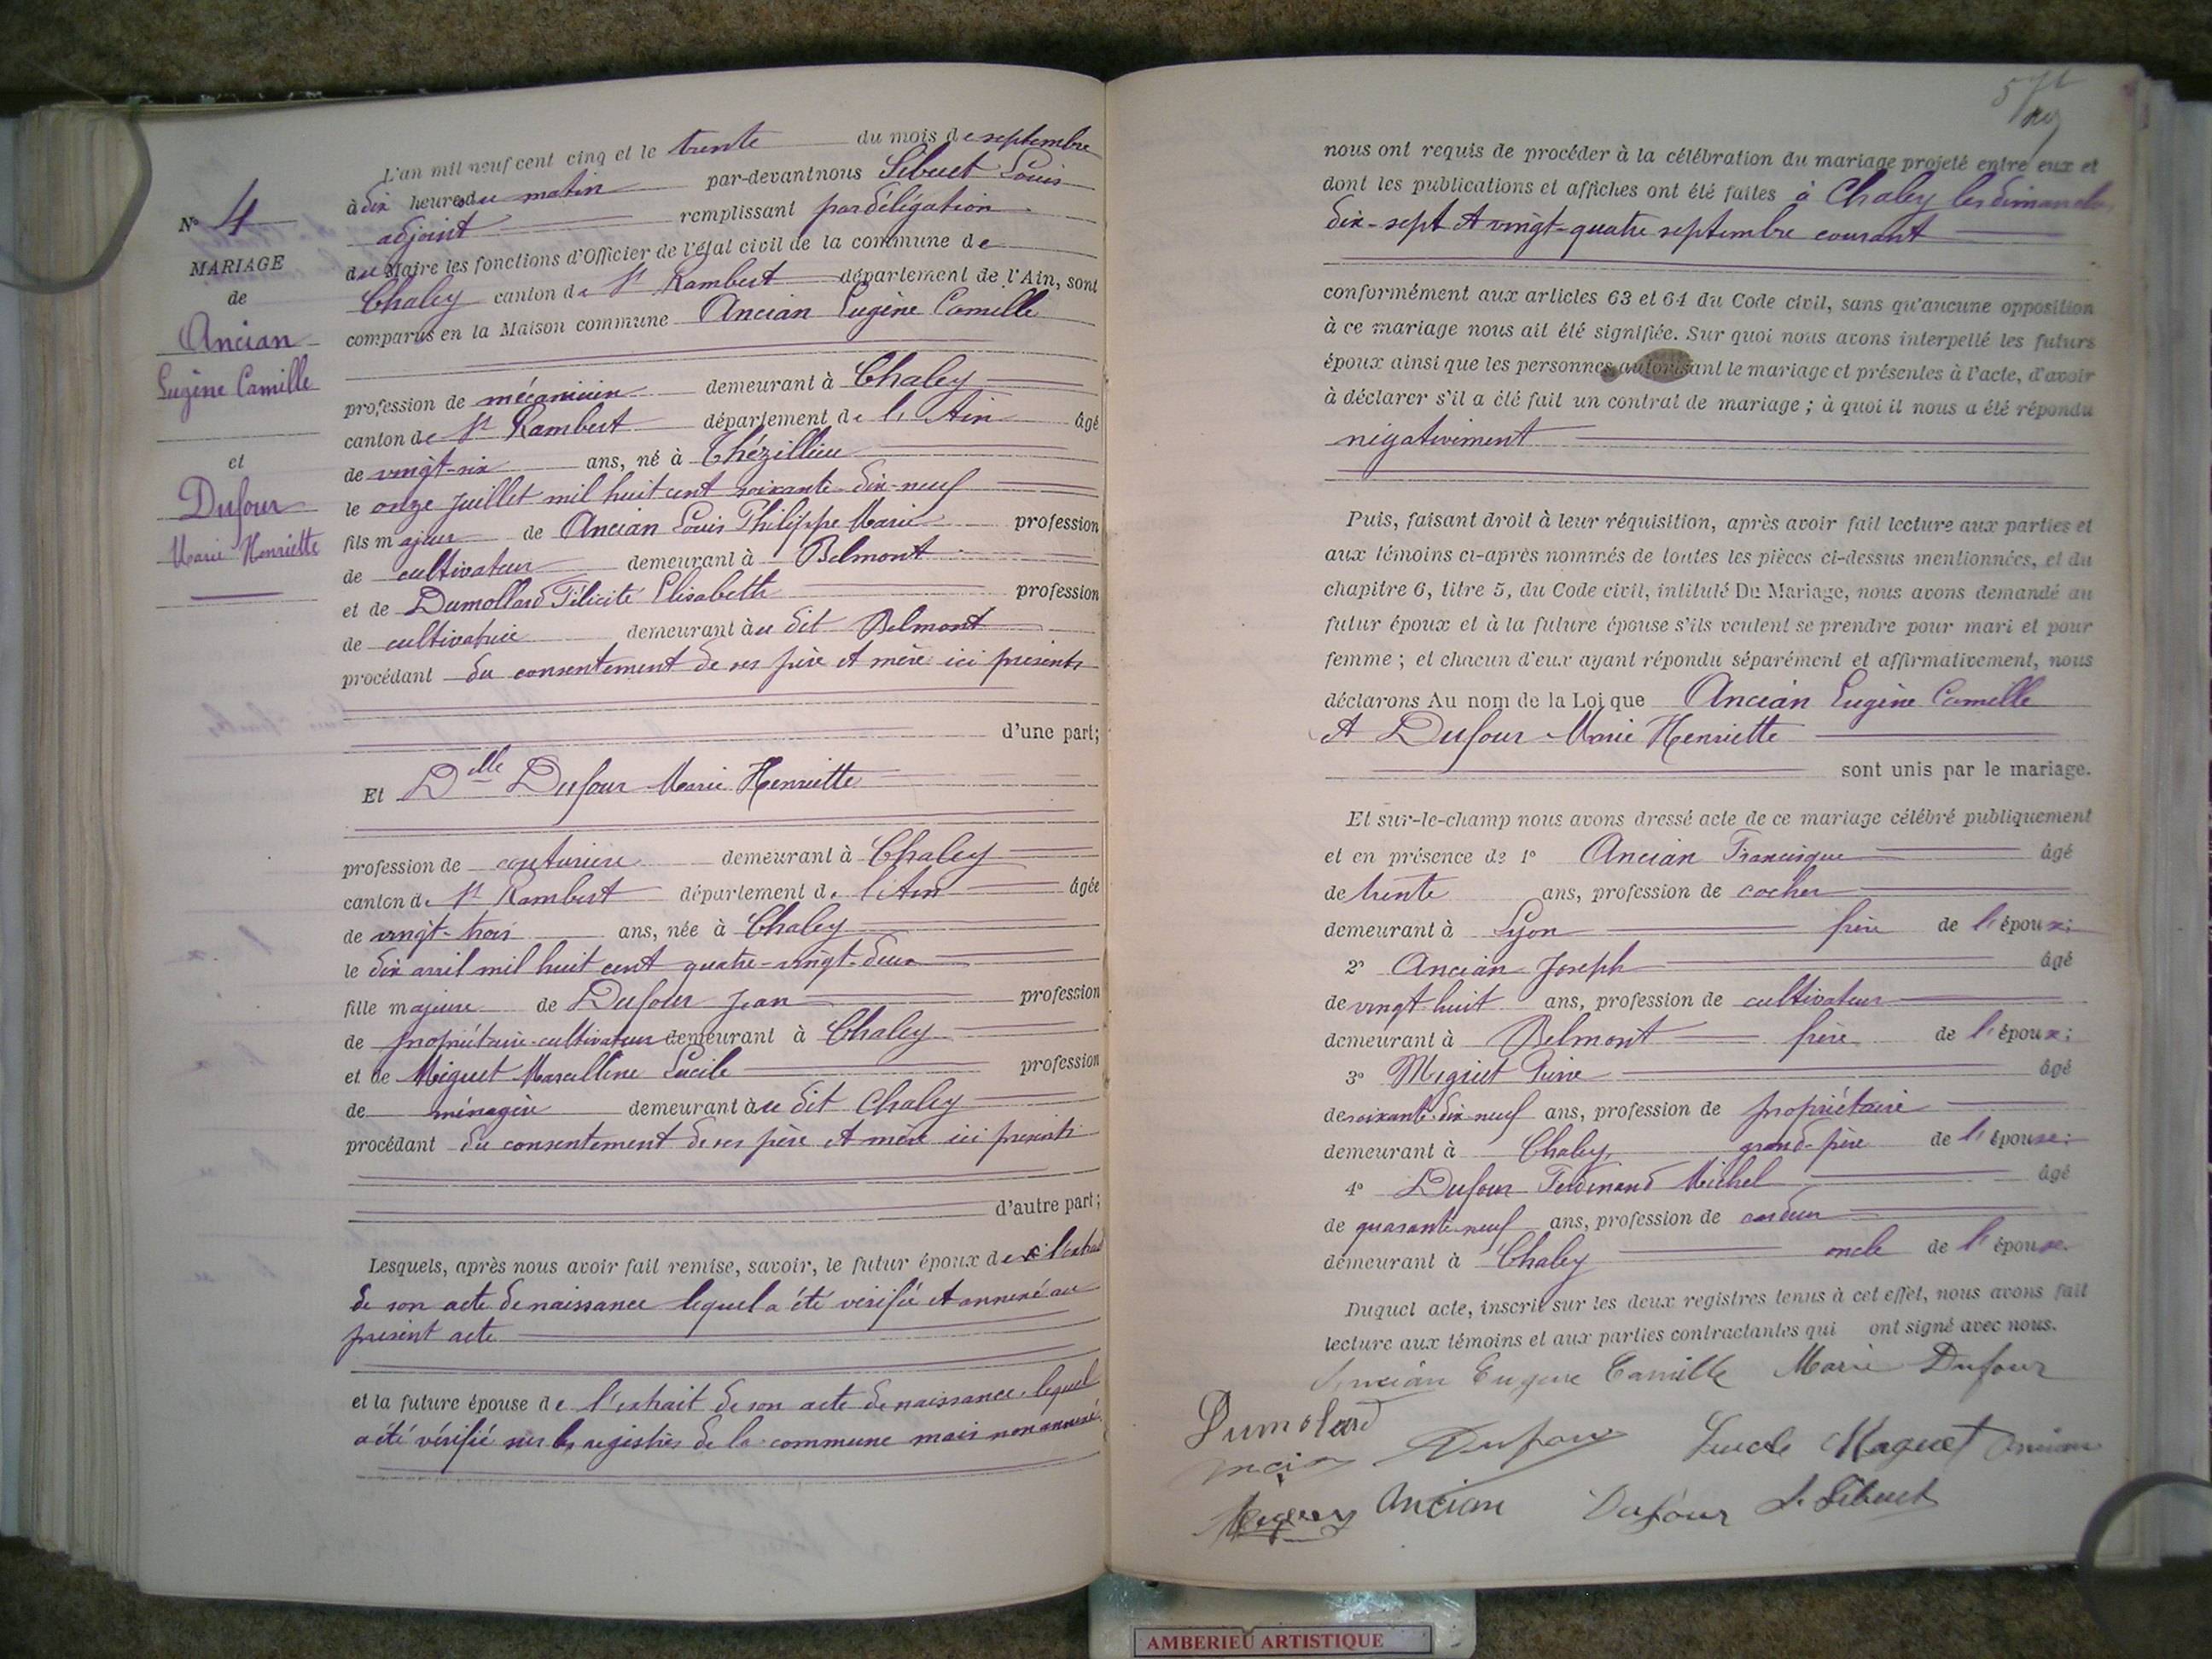 N° 4
MARIAGE
de
Ancian
Eugène Camille
et
Dufour
Marie Henriette
L'an mil neuf cent cinq et le trente du mois de septembre
à dix heures du matin par-devant nous Sibuet Louis
adjoint remplissant par délégation
du Maire les fonctions d'Officier de l'état civil de la commune de
Chaley canton de St Rambert département de l'Ain, sont
comparus en la Maison commune Ancian Eugène Camille
profession de mécanicien demeurant à Chaley
canton de St Rambert département de l'Ain âgé
de vingt-six ans, né à Thézillieu
le onze juillet mil huit cent soixante-dix-neuf
fils majeur de Ancian Louis Philippe Marie profession
de cultivateur demeurant à Belmont
et de Dumollard Félicité Elisabeth profession
de cultivatrice demeurant au dit Belmont
procédant du consentement de ses père et mère ici présents
d'une part;
Et Dlle Dufour Marie Henriette
profession de couturière demeurant à Chaley
canton de St Rambert département de l'Ain âgée
de vingt-trois ans, née à Chaley
le dix avril mil huit cent quatre-vingt-deux
fille majeure de Dufour Jean profession
de propriétaire-cultivateur demeurant à Chaley
et de Miguet Marcelline Lucile profession
de ménagère demeurant au dit Chaley
procédant du consentement de ses père et mère ici présents
d'autre part;
Lesquels, après nous avoir fait remise, savoir, le futur époux de l'extrait
de son acte de naissance lequel a été vérifié et annexé au
présent acte
et la future épouse de l'extrait de son acte de naissance lequel
a été vérifié sur les registres de la commune mais non annexé.
nous ont requis de procéder à la célébration du mariage projeté entre eux et
dont les publications et affiches ont été faites à Chaley les dimanches
dix-sept et vingt-quatre septembre courant
conformément aux articles 63 et 64 du Code civil, sans qu'aucune opposition
à ce mariage nous ait été signifiée. Sur quoi nous avons interpellé les futurs
époux ainsi que les personnes autorisant le mariage et présentes à l'acte, d'avoir
à déclarer s'il a été fait un contrat de mariage ; à quoi il nous a été répondu
négativement
Puis, faisant droit à leur réquisition, après avoir fait lecture aux parties et
aux témoins ci-après nommés de toutes les pièces ci-dessus mentionnées, et du
chapitre 6, titre 5, du Code civil, intitulé Du Mariage, nous avons demandé au
futur époux et à la future épouse s'ils veulent se prendre pour mari et pour
femme ; et chacun d'eux ayant répondu séparément et affirmativement, nous
déclarons Au nom de la Loi que Ancian Eugène Camille
et Dufour Marie Henriette
sont unis par le mariage.
Et sur-le-champ nous avons dressé acte de ce mariage célébré publiquement
et en présence de 1° Ancian Francisque âgé
de trente ans, profession de cocher
demeurant à Lyon frère de l'époux;
2° Ancian Joseph âgé
de vingt huit ans, profession de cultivateur
demeurant à Belmont frère de l'époux;
3° Miguet Pierre âgé
de soixante-dix-neuf ans, profession de propriétaire
demeurant à Chaley, grand-père de l'épouse;
4° Dufour Ferdinand Michel âgé
de quarante-neuf ans, profession de cardeur
demeurant à Chaley oncle de l'épouse.
Duquel acte, inscrit sur les deux registres tenus à cet effet, nous avons fait
lecture aux témoins et aux parties contractantes qui ont signé avec nous.
Ancian Eugène Camille Marie Dufour
Dumolard
Dufour Lucile Miguet Ancian
Ancian Dufour L. Sibuet
AMBERIEU ARTISTIQUE